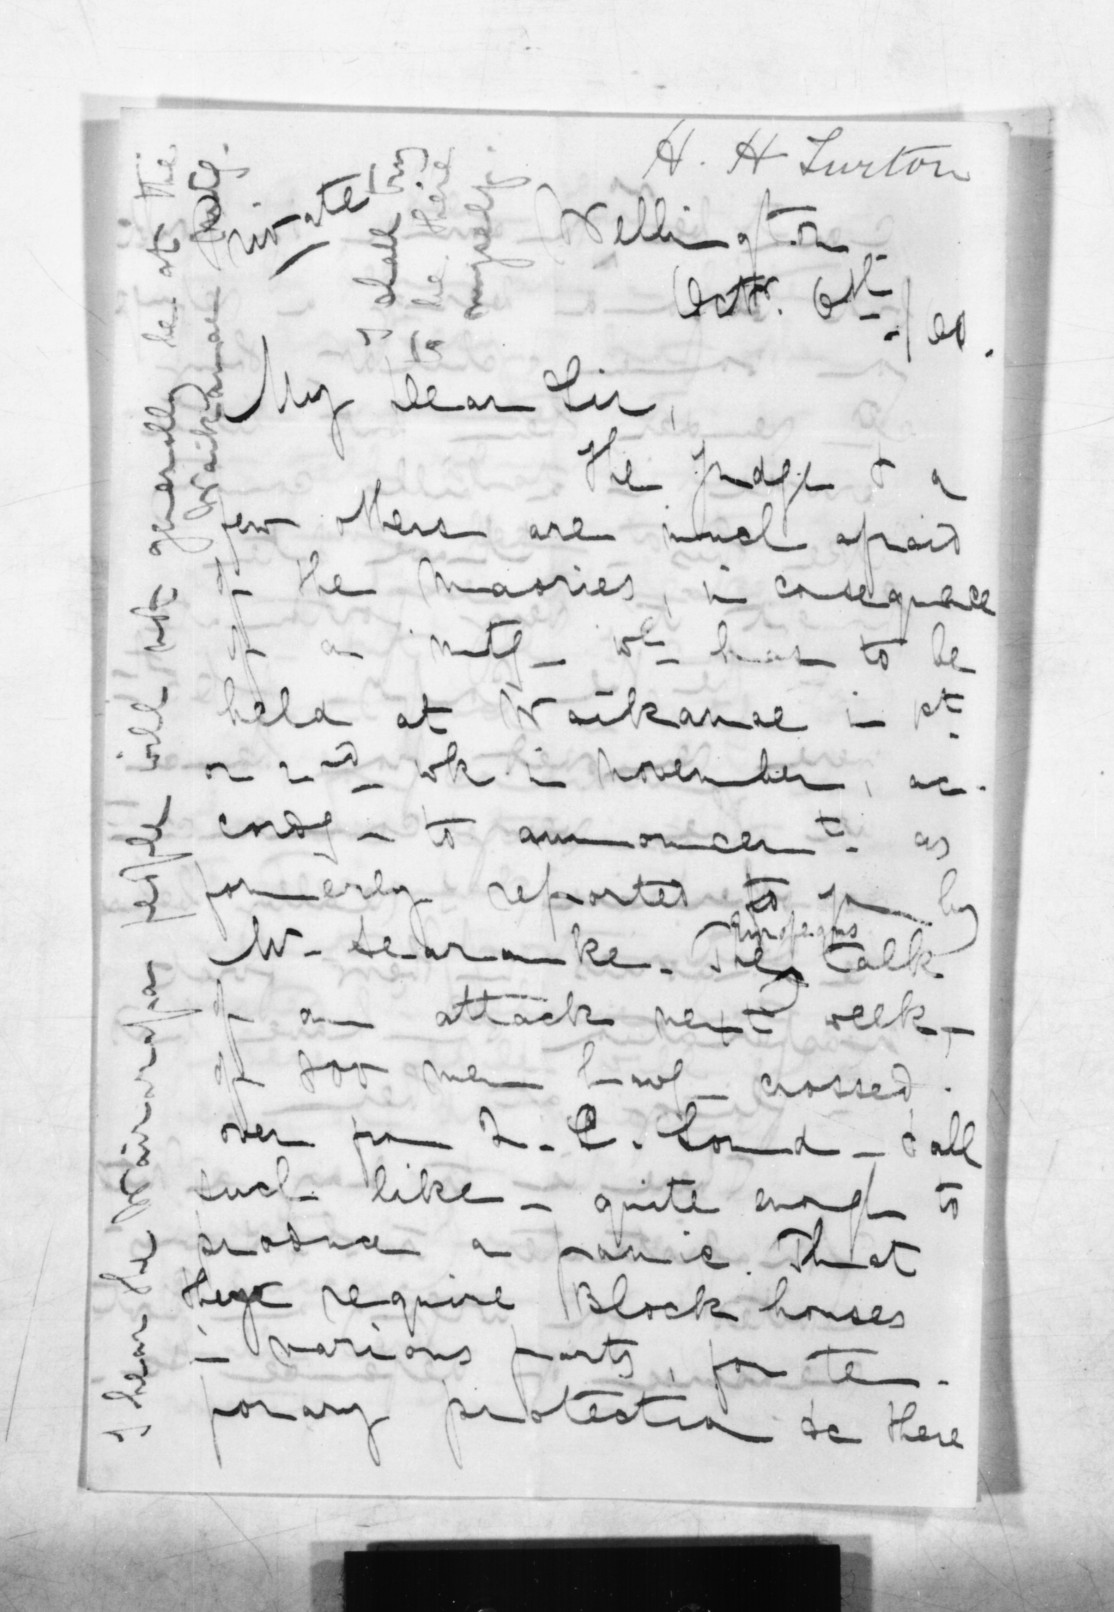 H. H Turton
Private
Wellington
Octr. 6th /60.
My dear Sir,
The Judge & a
few others are much afraid
of the Maories, in consequence
of a mtg wh has to be
held at Waikanae in 1st
or 2nd wk in November, ac-
cordg to announcemt as
formerly reported to you by
Mr Searancke. The Europeans talk
of an attack next week,
of 200 men havg crossed
over from Q. C. Sound - & all
such like - quite enough to
produce a panic. That
they require Block houses
in various parts, for tem-
porary protection &c there
I hear the Wairarapa people will not generally be at the
Waikanae mtg.
I shall try
to be there
myself.